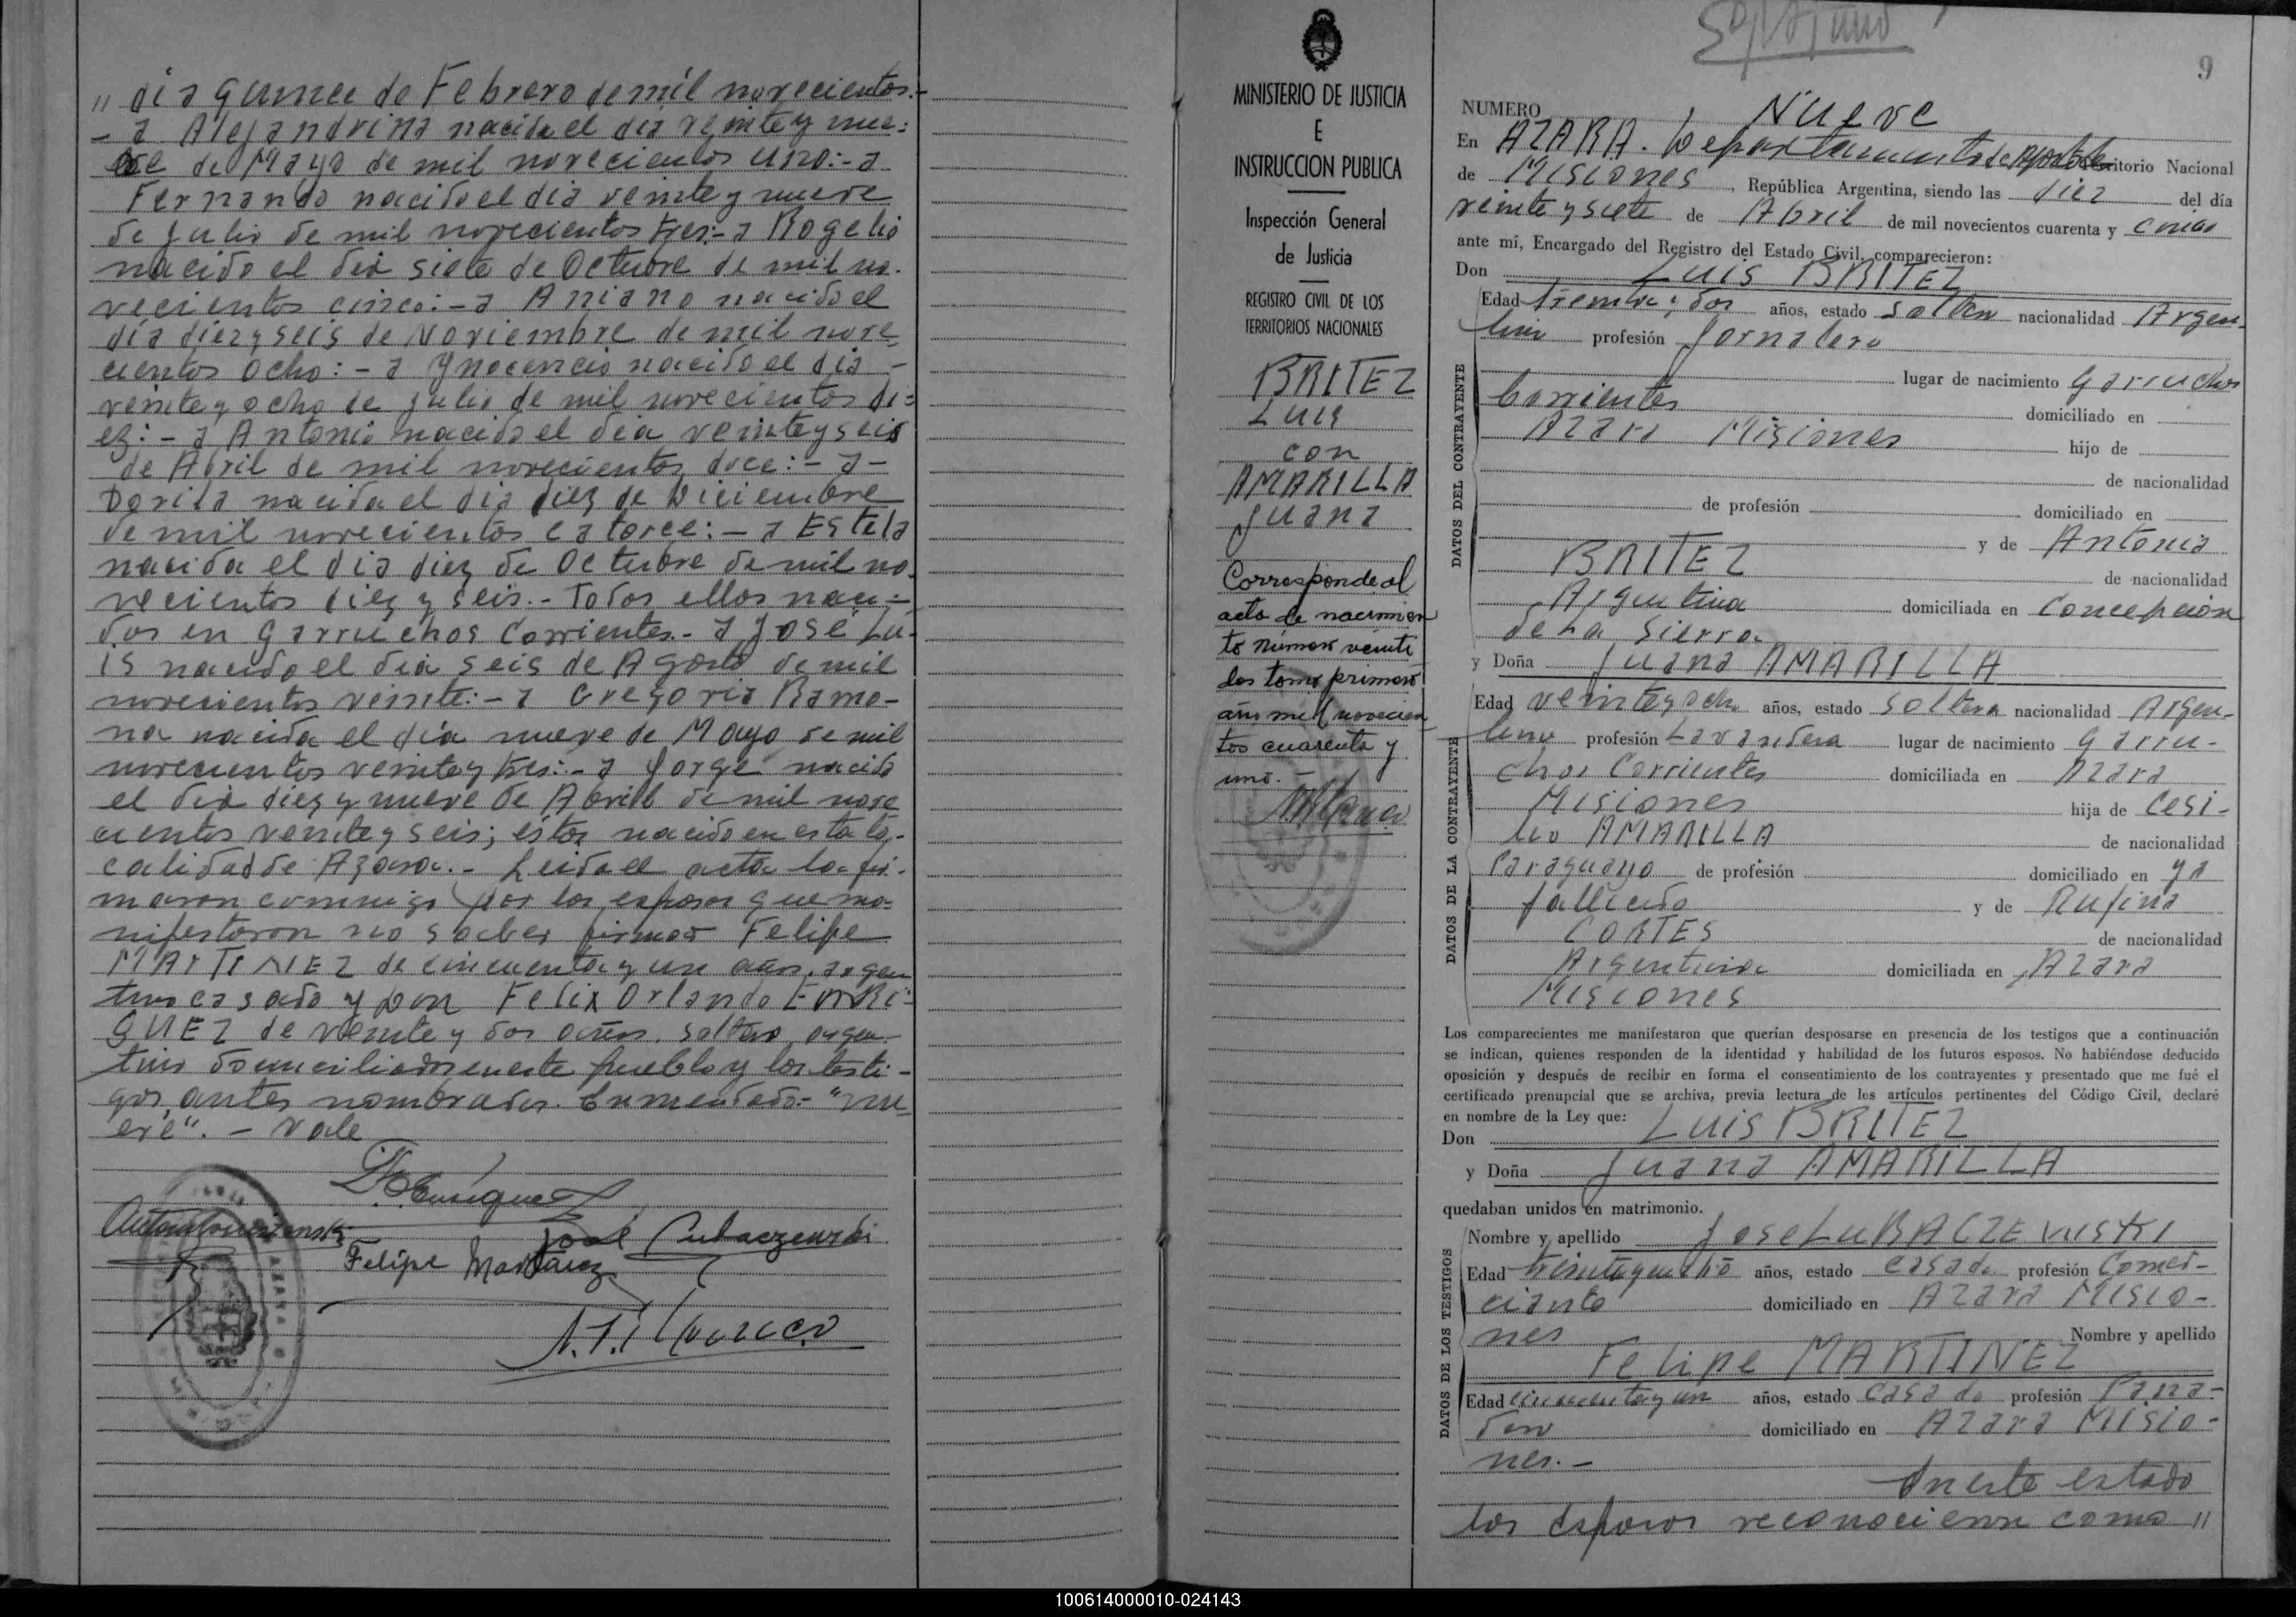 " día quince de Febrero de mil novecientos.-
- a Alejandrina nacida el día veinte y nue=
ve de Mayo de mil novecientos uno:- a
Fernando nacido el día veinte y nueve
de Julio de mil novecientos tres:- a Rogelio
nacido el día siete de Octubre de mil no-
vecientos cinco:- a Aniano nacido el
día diez y seis de Noviembre de mil nove
cientos ocho:- a Ynocencio nacido el día -
veinte y ocho de Julio de mil novecientos di=
ez:- a Antonio nacido el día veinte y seis
de Abril de mil novecientos doce:- a -
Dorila nacida el día diez de Diciembre
de mil novecientos catorce:- a Estela
nacida el día diez de Octubre de mil no-
vecientos diez y seis.- Todos ellos naci-
dos en Garruchos Corrientes.- a José Lu-
is nacido el día seis de Agosto de mil
novecientos veinte:- a Gregoria Ramo-
na nacida el día nueve de Mayo de mil
novecientos veinte y tres:- a Jorge nacido
el día diez y nueve de Abril de mil nove
cientos veinte y seis; éstos nacido en esta lo-
calidad de Azara.- Leída el acta la fir-
maron conmigo por los esposos que ma-
nifestaron no saber firmar Felipe
MARTINEZ de cincuenta y un años, argen
tino casado y por Felix Orlando ENRI-
QUEZ de veinte y dos años, soltero, argen-
tino domiciliados en este pueblo y los testi-
gos antes nombrados. Enmendado:- "nu
eve".- Vale
Enriquez
José Lubaczewski
Felipe Martinez
MINISTERIO DE JUSTICIA
E
INSTRUCCION PUBLICA
Inspección General
de Justicia
REGISTRO CIVIL DE LOS
TERRITORIOS NACIONALES
BRITEZ
Luis
con
AMARILLA
Juana
Corresponde al
acta de nacimien
to número veinti
dos tomo primero
año mil novecien
tos cuarenta y
uno.-
9
NUMERO Nueve
En AZARA. Departamento de Apóstoles Territorio Nacional
de Misiones, República Argentina, siendo las diez del día
veinte y siete de Abril de mil novecientos cuarenta y cinco
ante mí, Encargado del Registro del Estado Civil, comparecieron:
Don Luis BRITEZ
DATOS DEL CONTRAYENTE
Edad treinta y dos años, estado soltero nacionalidad Argen-
tino profesión Jornalero
lugar de nacimiento Garruchos
Corrientes domiciliado en
Azara Misiones hijo de
de nacionalidad
de profesión domiciliado en
y de Antonia
BRITEZ de nacionalidad
Argentina domiciliada en Concepción
de La Sierra
y Doña Juana AMARILLA
DATOS DE LA CONTRAYENTE
Edad veinte y ocho años, estado soltera nacionalidad Argen-
tina profesión Lavandera lugar de nacimiento Garru-
chos Corrientes domiciliada en Azara
Misiones hija de Cesi-
lio AMARILLA de nacionalidad
Paraguayo de profesión domiciliado en ya
fallecido y de Rufina
CORTES de nacionalidad
Argentina domiciliada en Azara
Misiones
Los comparecientes me manifestaron que querían desposarse en presencia de los testigos que a continuación
se indican, quienes responden de la identidad y habilidad de los futuros esposos. No habiéndose deducido
oposición y después de recibir en forma el consentimiento de los contrayentes y presentado que me fué el
certificado prenupcial que se archiva, previa lectura de los artículos pertinentes del Código Civil, declaré
en nombre de la Ley que:
Don Luis BRITEZ
y Doña Juana AMARILLA
quedaban unidos en matrimonio.
DATOS DE LOS TESTIGOS
Nombre y apellido Jose LuBACZEWSKI
Edad treinta y ocho años, estado casado profesión Comer-
ciante domiciliado en Azara Misio-
nes Nombre y apellido
Felipe MARTINEZ
Edad cincuenta y un años, estado casado profesión Pana-
dero domiciliado en Azara Misio-
nes.-
En este estado
los esposos reconocieron como "
100614000010-024143